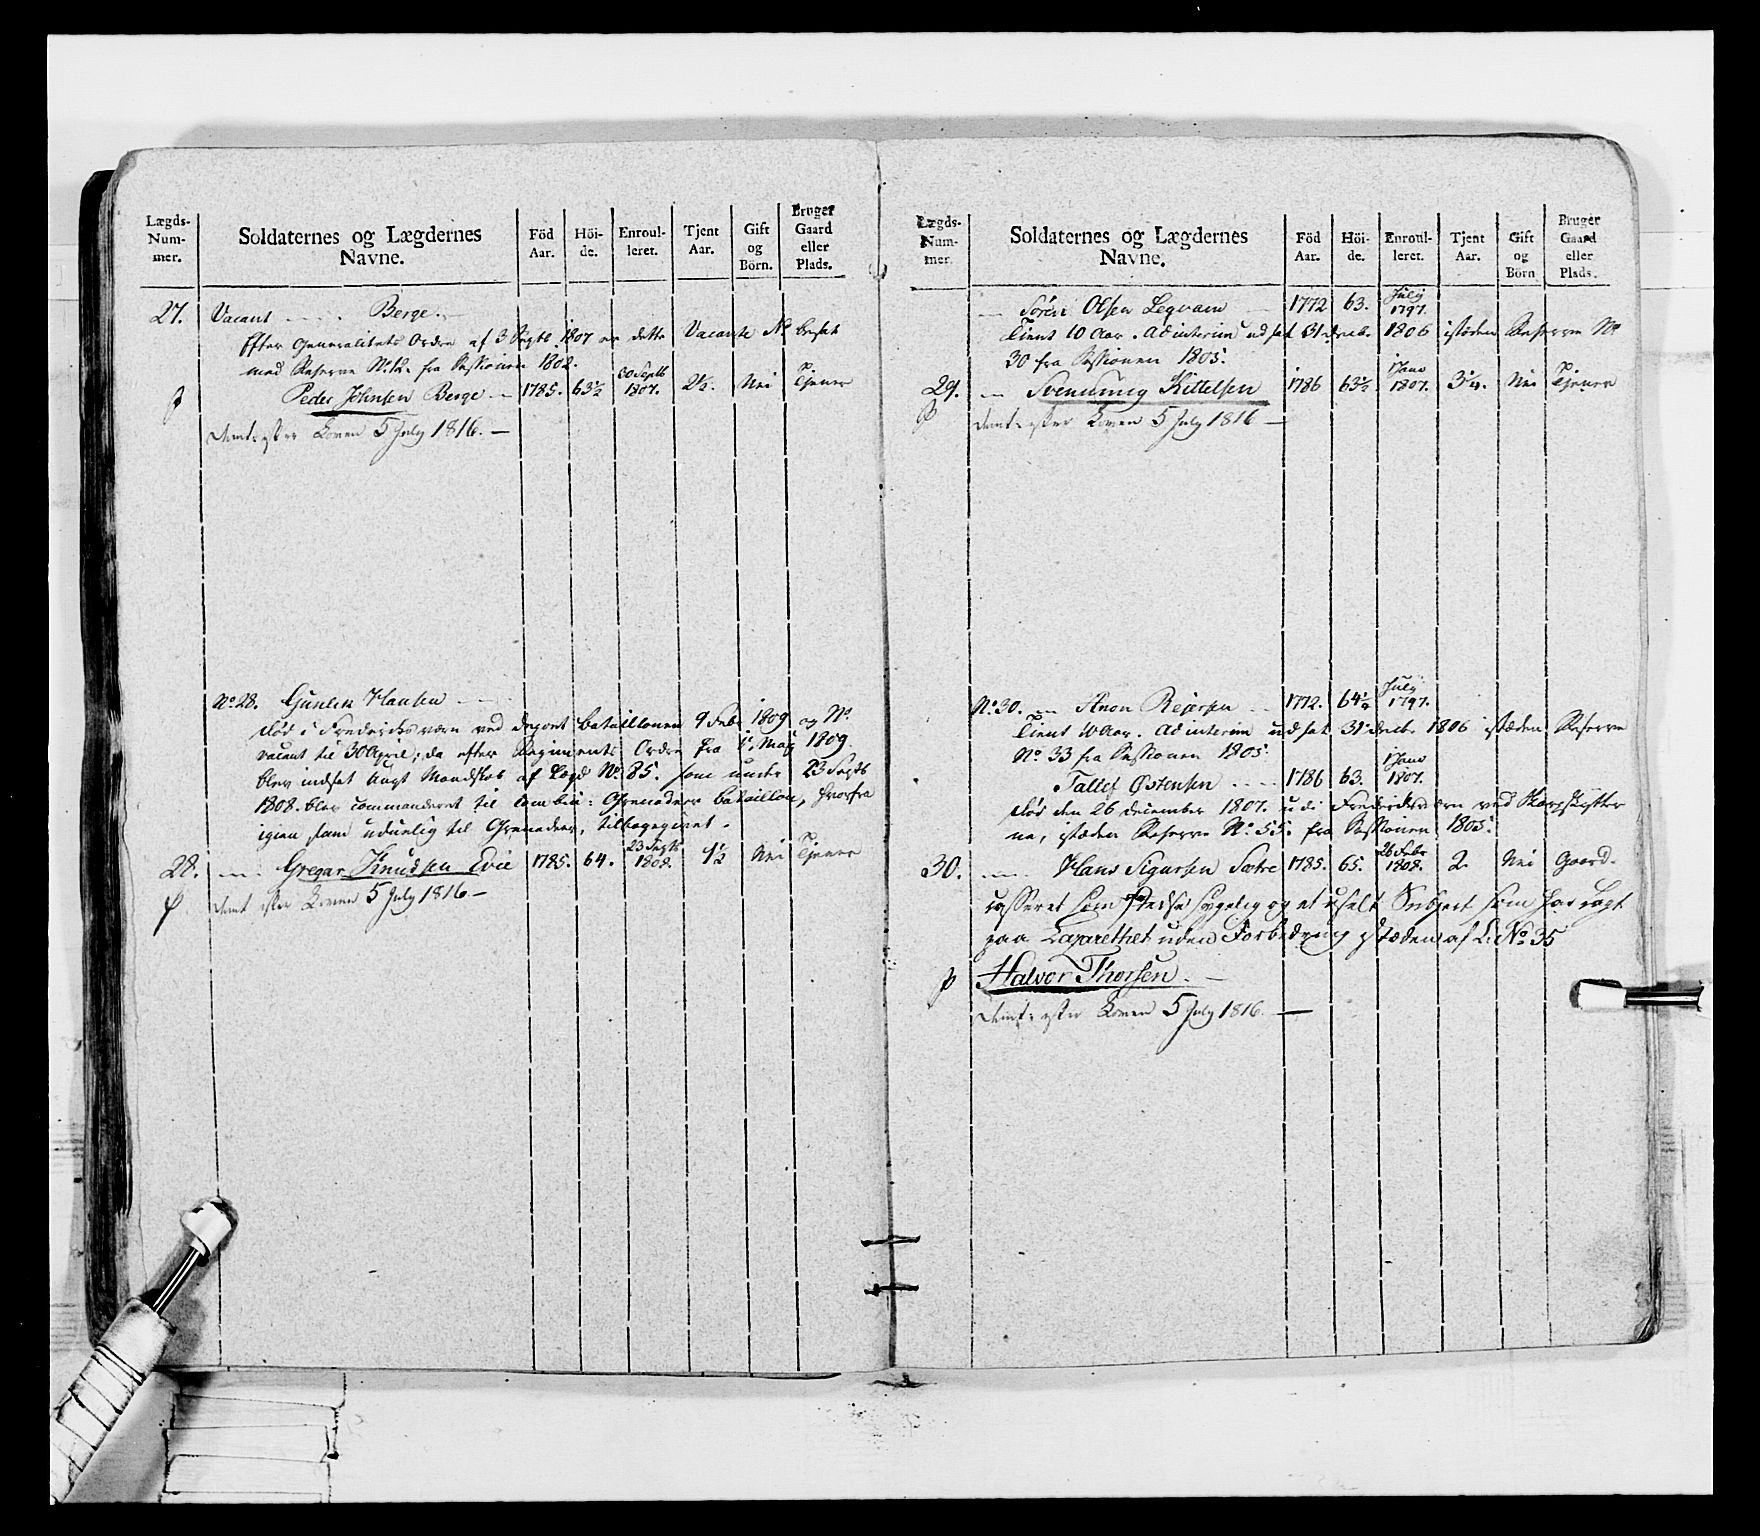 Lægds-Num-mer. Soldaternes og Lægdernes Navne. Föd Aar. Höi-de. Enroul-leret. Tjent Aar. Gift og Börn. Bruger Gaard eller Plads.
27. Vacant Berge.
Efter Generalitets Ordre af 3 Septb 1807 er dette Vacante No besat
med Reserve No. 12 fra Sessionen 1802.
Peder Johnsen Berge 1785. 63½ 30 Septb 1807. 2½. Nei Tjener
Dimt: efter Loven 5 July 1816.
No. 28. Gunlek Hansen
død i Frederiksværn ved depot Bataillonen 9 Febr 1809 og No.
vacant til 30 April; da efter Regiments Ordre fra 1. Maj 1809.
blev indsat bemt Mandskab af Lægd No. 85. som under 23 Septb
1808. blev commanderet til Combin: Grenadeer Bataillon, hvorfra
igien, som udulig til Grenadeer, tilbagegivet.
28. Gregar Knudsen Evie 1785. 64. 23 Septb 1808. 1½ Nei Tjener
Dimt efter Loven 5 July 1816
Lægds-Num-mer. Soldaternes og Lægdernes Navne. Föd Aar. Höi-de. Enroul-leret. Tjent Aar. Gift og Börn Bruger Gaard eller Plads.
Sören Olsen Legvam 1772 63. July 1797.
Tient 10 Aar. Ad interim udsat 31 decbr. 1806 istæden Reserve No
30 fra Sessionen 1805.
29. Svenning Kittelsen 1786 63½ 1 Janv 1807. 3¼. Nei Tjener
Dimt: efter Loven 5 July 1816
No. 30. Anon Rejersen 1772. 64¼ July 1797.
Tient 10 Aar. Ad interim udsat 31 decbr 1806 istæden Reserve
No 33 fra Sessionen 1805.
Tallef Østensen 1786 63. 1 Janv 1807.
død den 26 December 1807. udi Frederiksværn ved
istæden Reserve No. 55. fra Sessionen 1805.
30. Hans Sigursen Sætre 1785. 65. 26 Febr 1808. 2. Nei Gaard.
casseret som sygelig og et uselt Subject som har ligt
paa Lazarethet uden Forbedring istæden af L: No 35
Halvor Thorsen.
Dimt: efter Loven 5 July 1816.